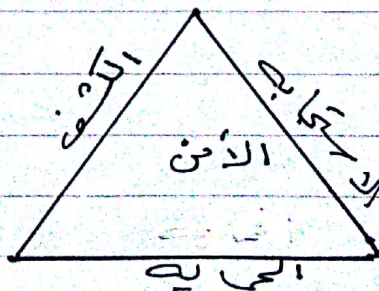 الكشف
الاستجابه
الأمن
الحمايه